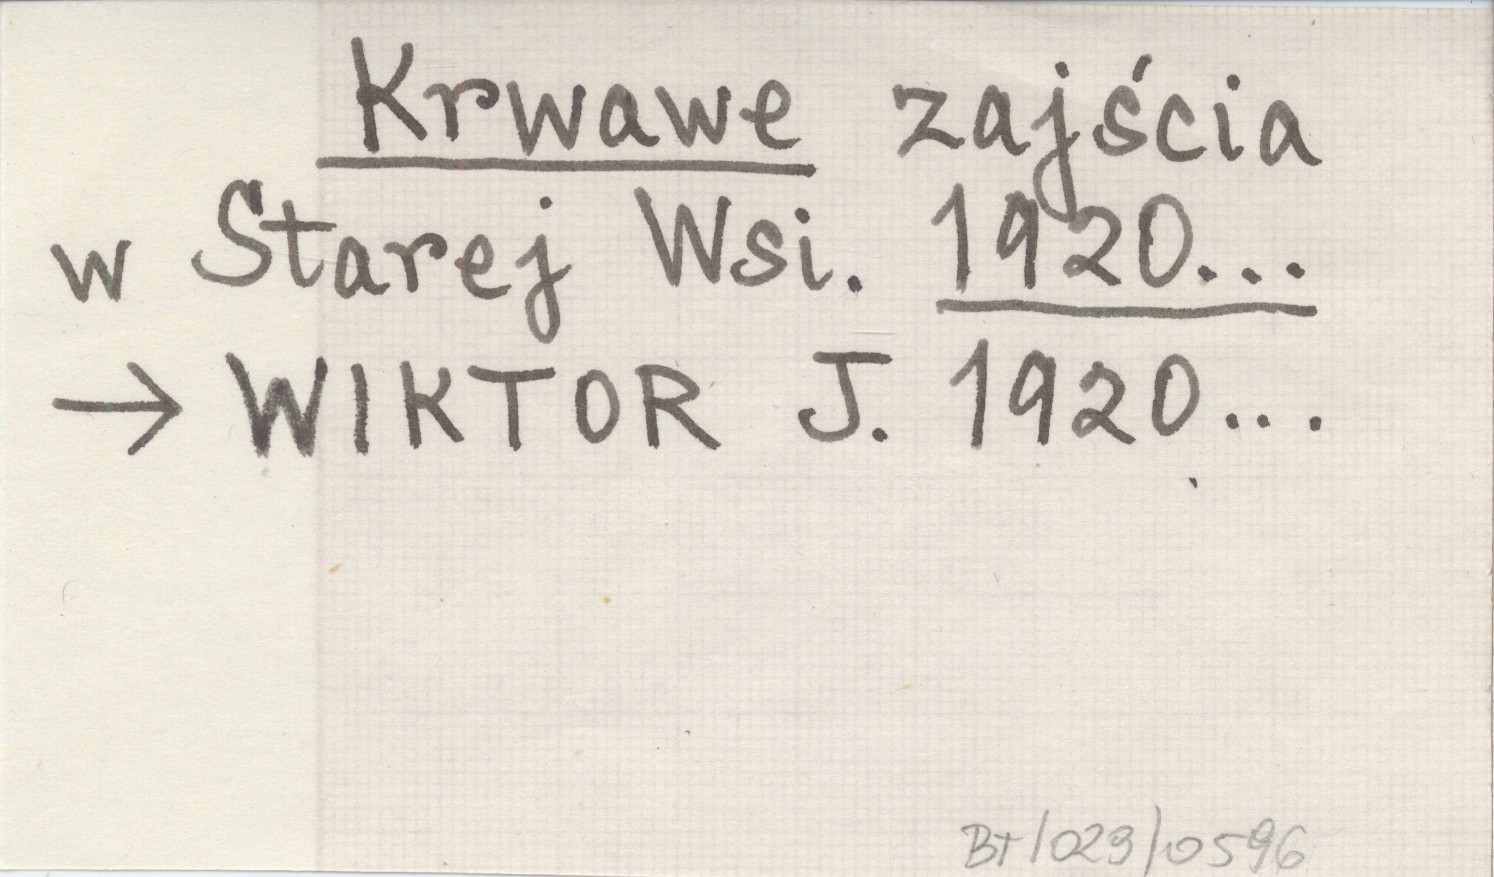 Krwawe zajścia
w Starej Wsi. 1920...
→ WIKTOR J. 1920...
BT/029/0596